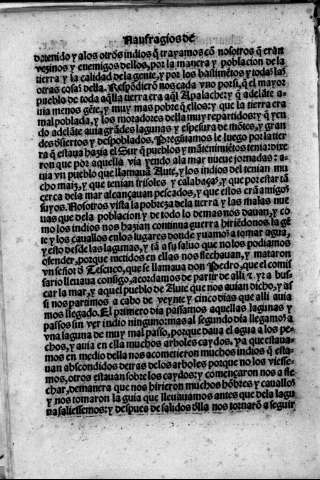 Naufragios de
dotenido y a los otros indios q̃ trayamos cõ nosotros q̃ eran
vezinos y enemigos dellos, por la manera y poblacion de la
tierra y la calidad dela gente, y por los bastimẽtos y todas las
otras cosas della. Respõdierõ nos cada vno por si, q̃ el mayor
pueblo de toda aq̃lla tierra era aq̃l Apalache: y q̃ adelãte a-
uia menos gẽte, y muy mas pobre q̃ ellos: y que la tierra era
mal poblada, y los moradores della muy repartidos: y q̃ yen
do adelãte auia grãdes lagunas y espesura de mõtes, y gran
des desiertos y despoblados. Preguntamos le luego por la tier
ra q̃ estaua hazia el Sur q̃ pueblos y mãtenimiẽtos tenia: dixe
ron que por aquella via yendo ala mar nueue jornadas: a-
uia vn pueblo que llamauã Aute, y los indios del tenian mu
cho maiz, y que tenian frisoles y calabaças, y que por estar tã
cerca dela mar alcançauan pescados, y que ellos erã amigos
suyos. Nosotros vista la pobreza dela tierra y las malas nue
uas que dela poblacion y de todo lo demas nos dauan, y co
mo los indios nos hazian continua guerra hiriẽdonos la gẽ
te y los cauallos enlos lugares donde yuamos a tomar agua,
y esto desde las lagunas, y tã a su saluo que no los podiamos
ofender, porque metidos en ellas nos flechauan, y mataron
vn señor d̃ Tescuco, que se llamaua don Pedro, que el comis
sario lleuaua consigo, acordamos de partir de alli e yr a bus
car la mar, y aquel pueblo de Aute que nos auian dicho, y as
si nos partimos a cabo de veynte y cinco dias que alli auia
mos llegado. El primero dia passamos aquellas lagunas y
passos sin ver indio ninguno: mas al segundo dia llegamos a
vna laguna de muy mal passo, porque daua el agua a los pe-
chos, y auia en ella muchos arboles caydos. ya que estaua-
mos en medio della nos acometieron muchos indios q̃ esta-
uan abscondidos detras delos arboles porque no los viesse-
mos, otros estauan sobre los caydos: y començaron nos a fle
char, de manera que nos hirieron muchos hõbres y cauallos
y nos tomaron la guia que lleuauamos antes que dela lagu
na saliessemos: y despues de salidos d̃lla nos tornarõ a seguir